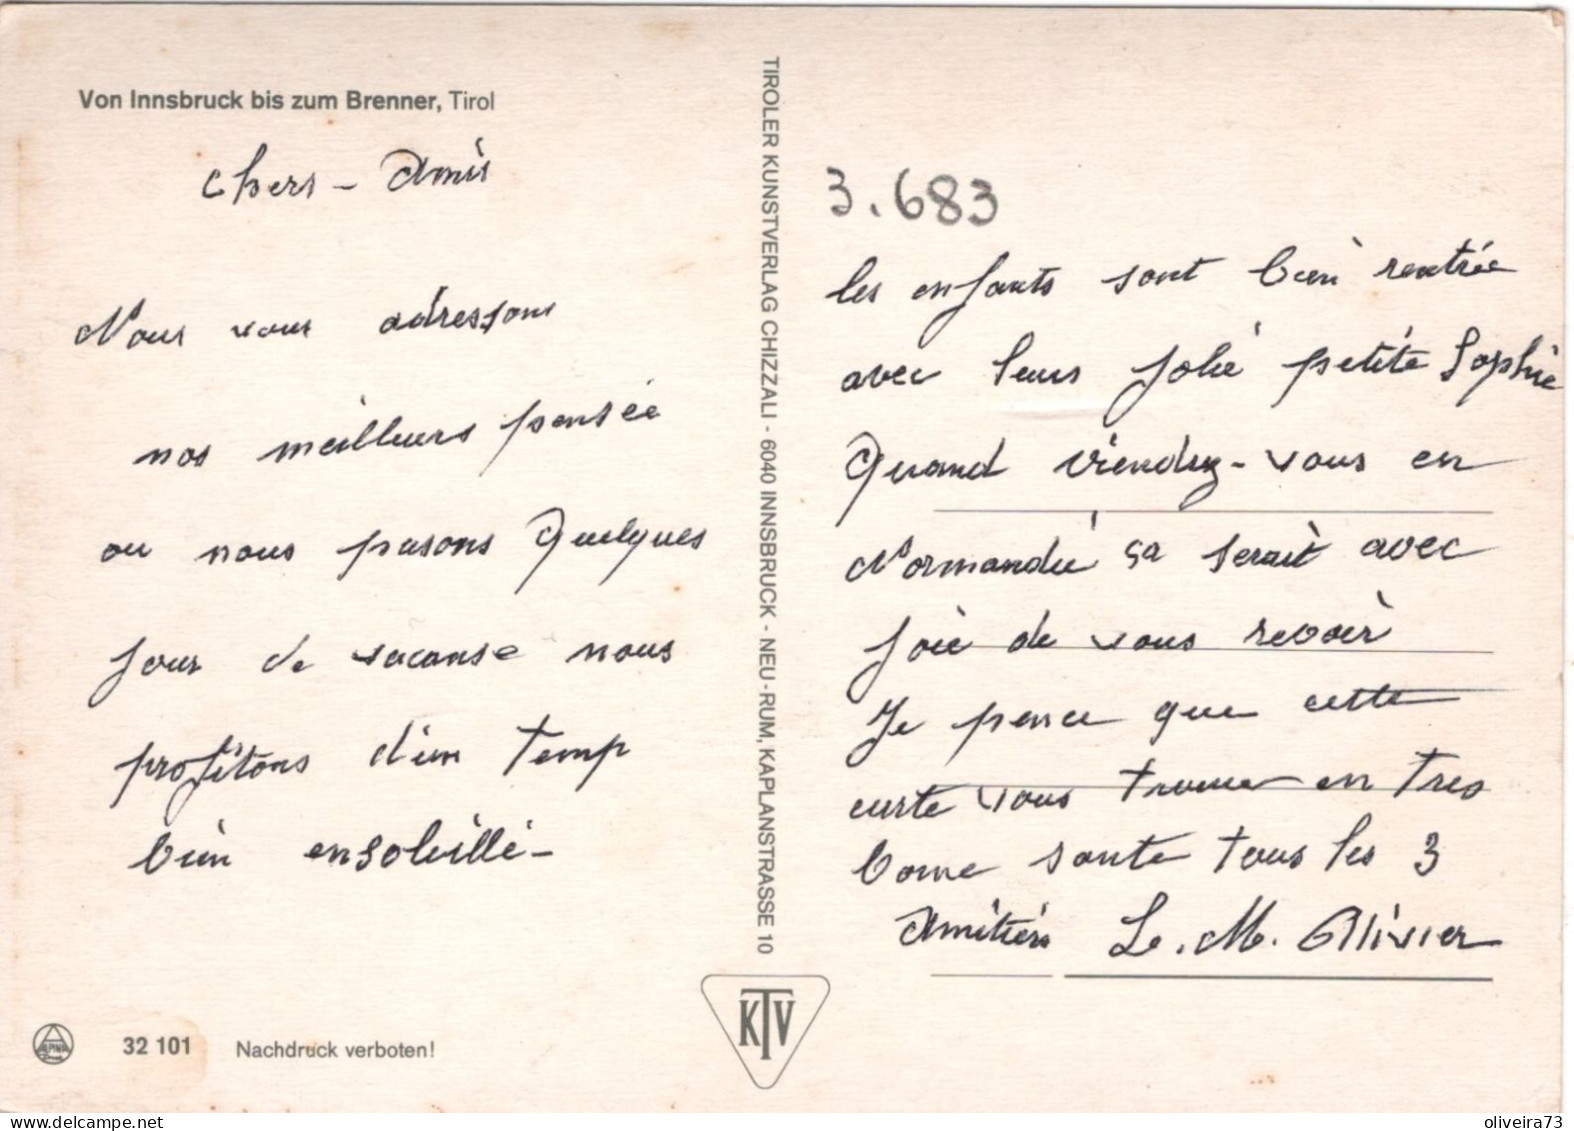 Von Innsbruck bis zum Brenner, Tirol
Chers - Amis
Nous vous adressons
nos meilleurs pensée
ou nous pasons quelques
jour de vacanse nous
profitons d'un temp
bien ensoleillé -
TIROLER KUNSTVERLAG CHIZZALI - 6040 INNSBRUCK - NEU-RUM, KAPLANSTRASSE 10
3.683
les enfants sont bien rentrée
avec leurs jolie petite Sophie
Quand viendez-vous en
Normandie ça serait avec
joie de vous revoir
Je pence que cette
carte vous trouve en tres
bonne sante tous les 3
Amitiés L. M. Ollivier
KTV
ALPINA
32 101 Nachdruck verboten!
oliveira73